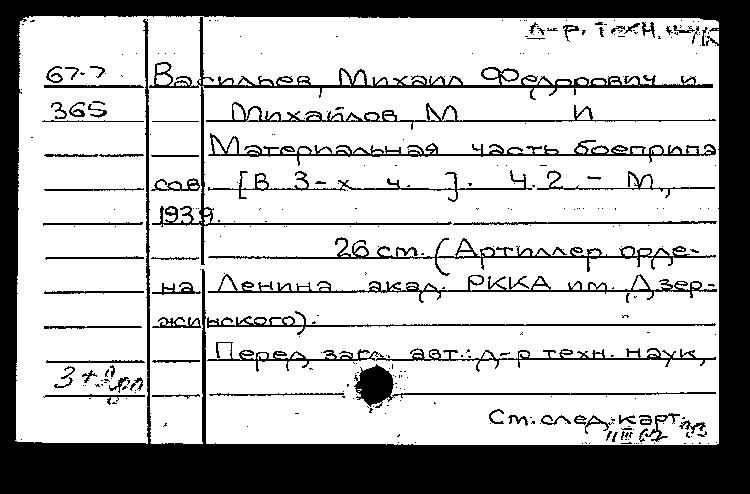 д-р. техн. наук
67-7 Васильев, Михаил Федорович и
365 Михайлов, М И
Материальная часть боеприпа
сов. [В 3-х ч. ]. Ч.2 – М.,
1939.
26 см. (Артиллер. орде-
на Ленина акад. РККА им. Дзер-
жинского).
Перед загл. авт.: д-р техн. наук,
3 +
См. след. карт.
III 62